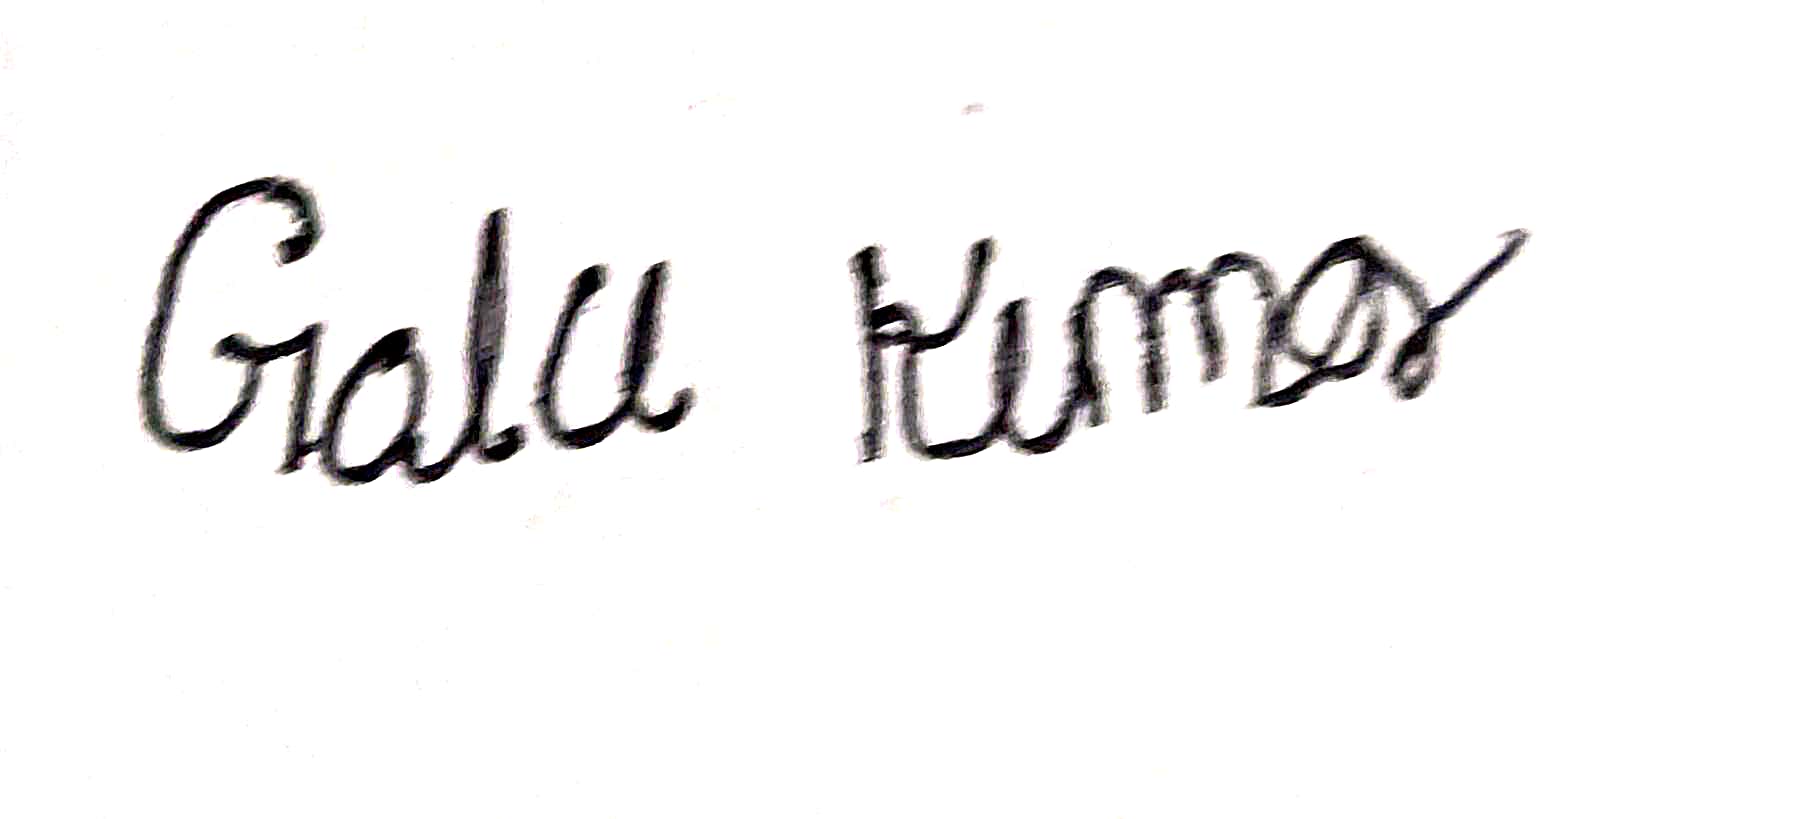 Galu Kumar